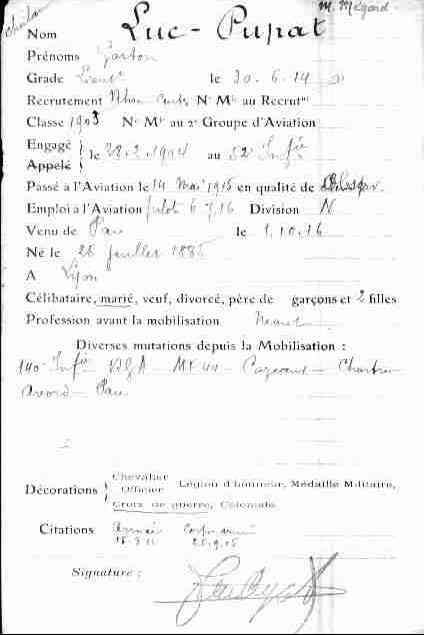 M. Mégard
Nom Luc-Pupat
Prénoms Gaston
Grade Lieut le 20.6.14
Recrutement Rhône N° Mle au Recrutnt
Classe 1903 N° Mle au 2e Groupe d'Aviation
Engagé
Appelé
le 28.2.1904 au 52e Infie
Passé à l'Aviation le 14 Mai 1915 en qualité de
Emploi à l'Aviation pilote 6.7.16 Division N
Venu de Pau le 1.10.16
Né le 26 juillet 1885
A Lyon
Célibataire, marié, veuf, divorcé, père de garçons et 2 filles
Profession avant la mobilisation Néant
Diverses mutations depuis la Mobilisation :
140e Infie RGA - MF 44 - Cazeaux - Chartres
Avord - Pau
Décorations
Chevalier
Officier
Légion d'honneur, Médaille Militaire,
Croix de guerre, Coloniale
Citations Armée Corps armée
Signature :